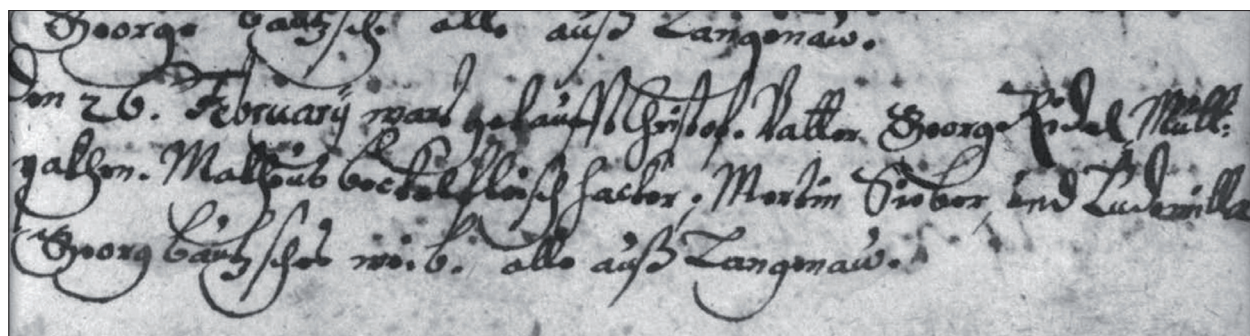 George Bautzsch. alle auß Langenaw.
Den 26. Februarij ward getaufft Christof. Vatter George Riedel Mült:
pathen. Matheus Bockel fleischhacker, Merten Sieber, und Ludomilla
Georg Bautzsches weib. alle auß Langenaw.